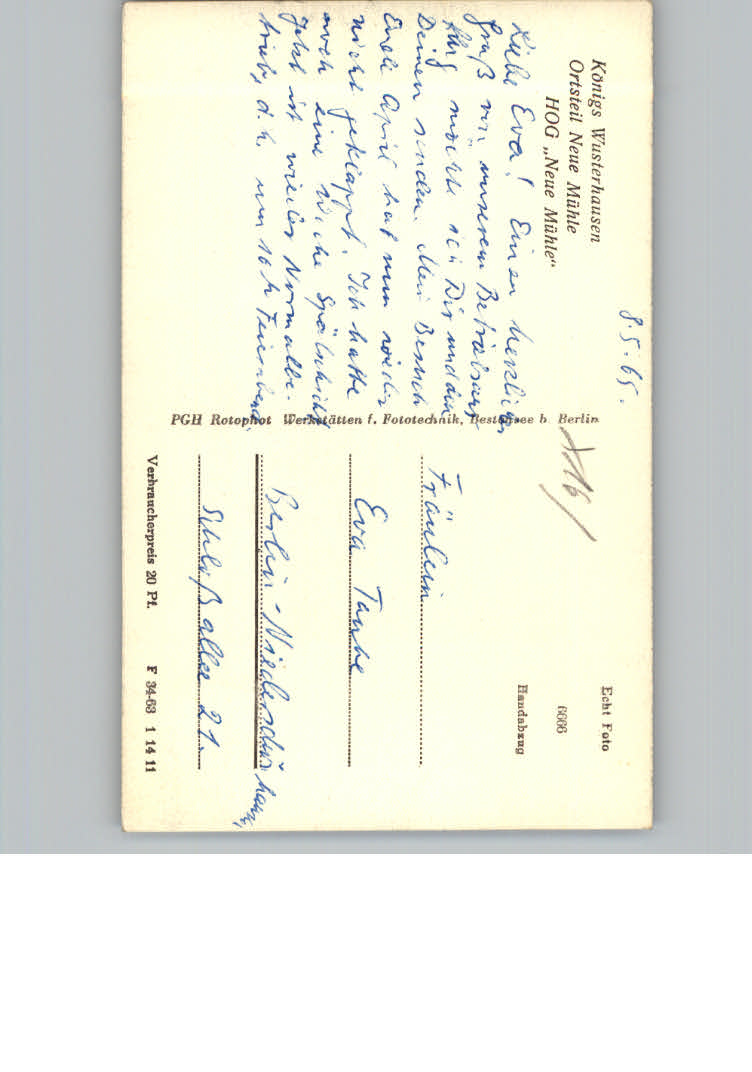 Königs Wusterhausen
Ortsteil Neue Mühle
HOG „Neue Mühle“
8.5.65.
Liebe Eva! Einen herzlichen
Gruß von unserem Betriebsaus-
flug möchte ich Dir und den
Deinen senden. Mein Besuch
Ende April hat nun wieder
nicht geklappt. Ich hatte
noch eine Woche Spätschicht
Jetzt ist wieder Normalbe-
trieb, d. h. um 16 h Feierabend.
PGH Rotophot Werkstätten f. Fototechnik, Bestensee b. Berlin
Echt Foto
6666
Handabzug
Fräulein
Eva Taube
Berlin-Niederschönhausen,
Schloßallee 21.
Verbraucherpreis 20 Pf. F 34-63 1 14 11